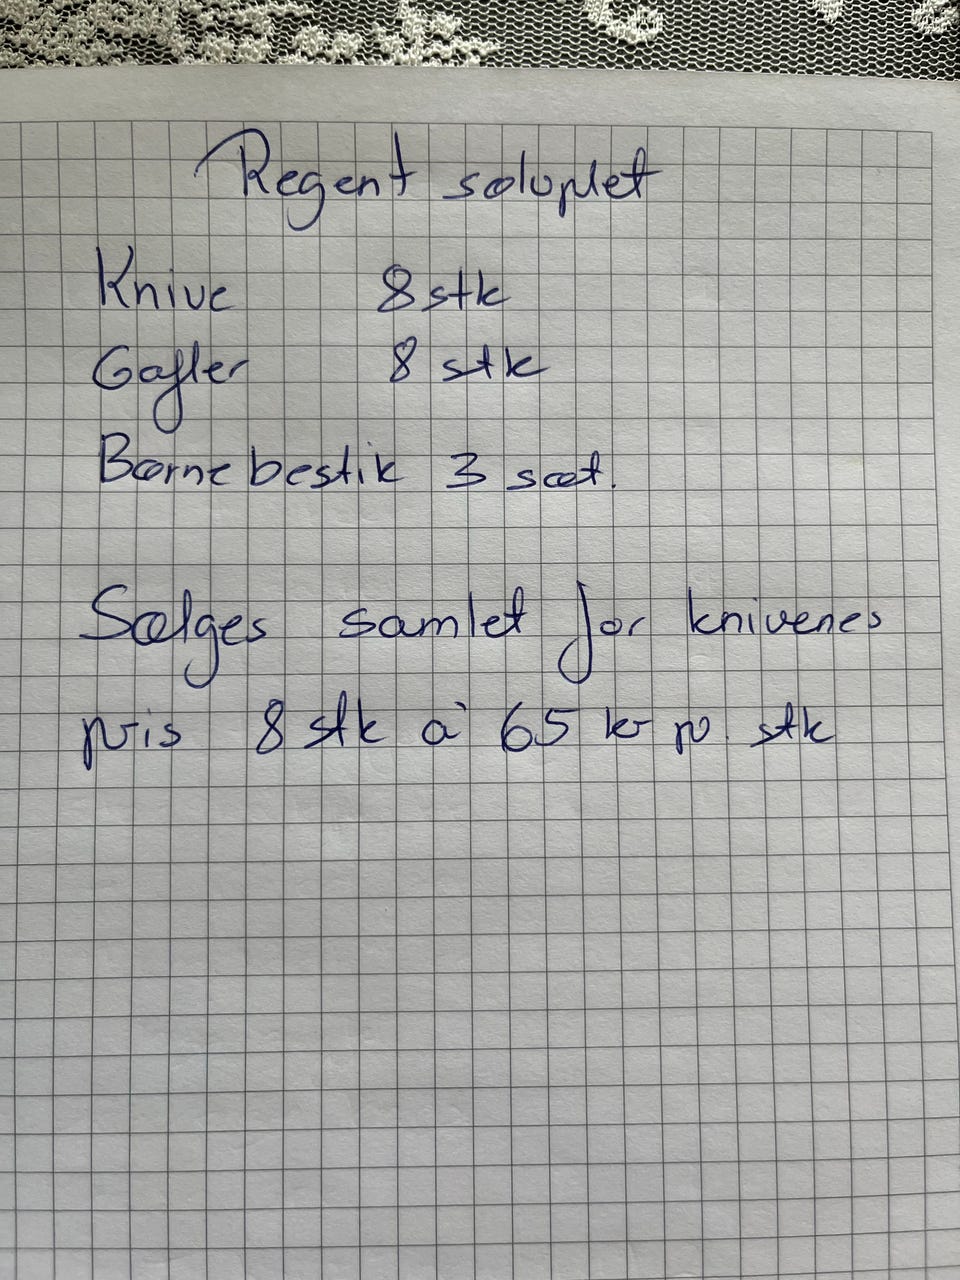 Regent sølvplet
Knive 8 stk
Gafler 8 stk
Børnebestik 3 sæt.
Sælges samlet for knivenes
pris 8 stk a' 65 kr p. stk